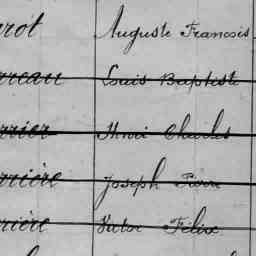 rot Auguste Francois
rreau Louis Baptiste
rrier Henri Charles
rrière Joseph Pierre
rrière Victor Félix